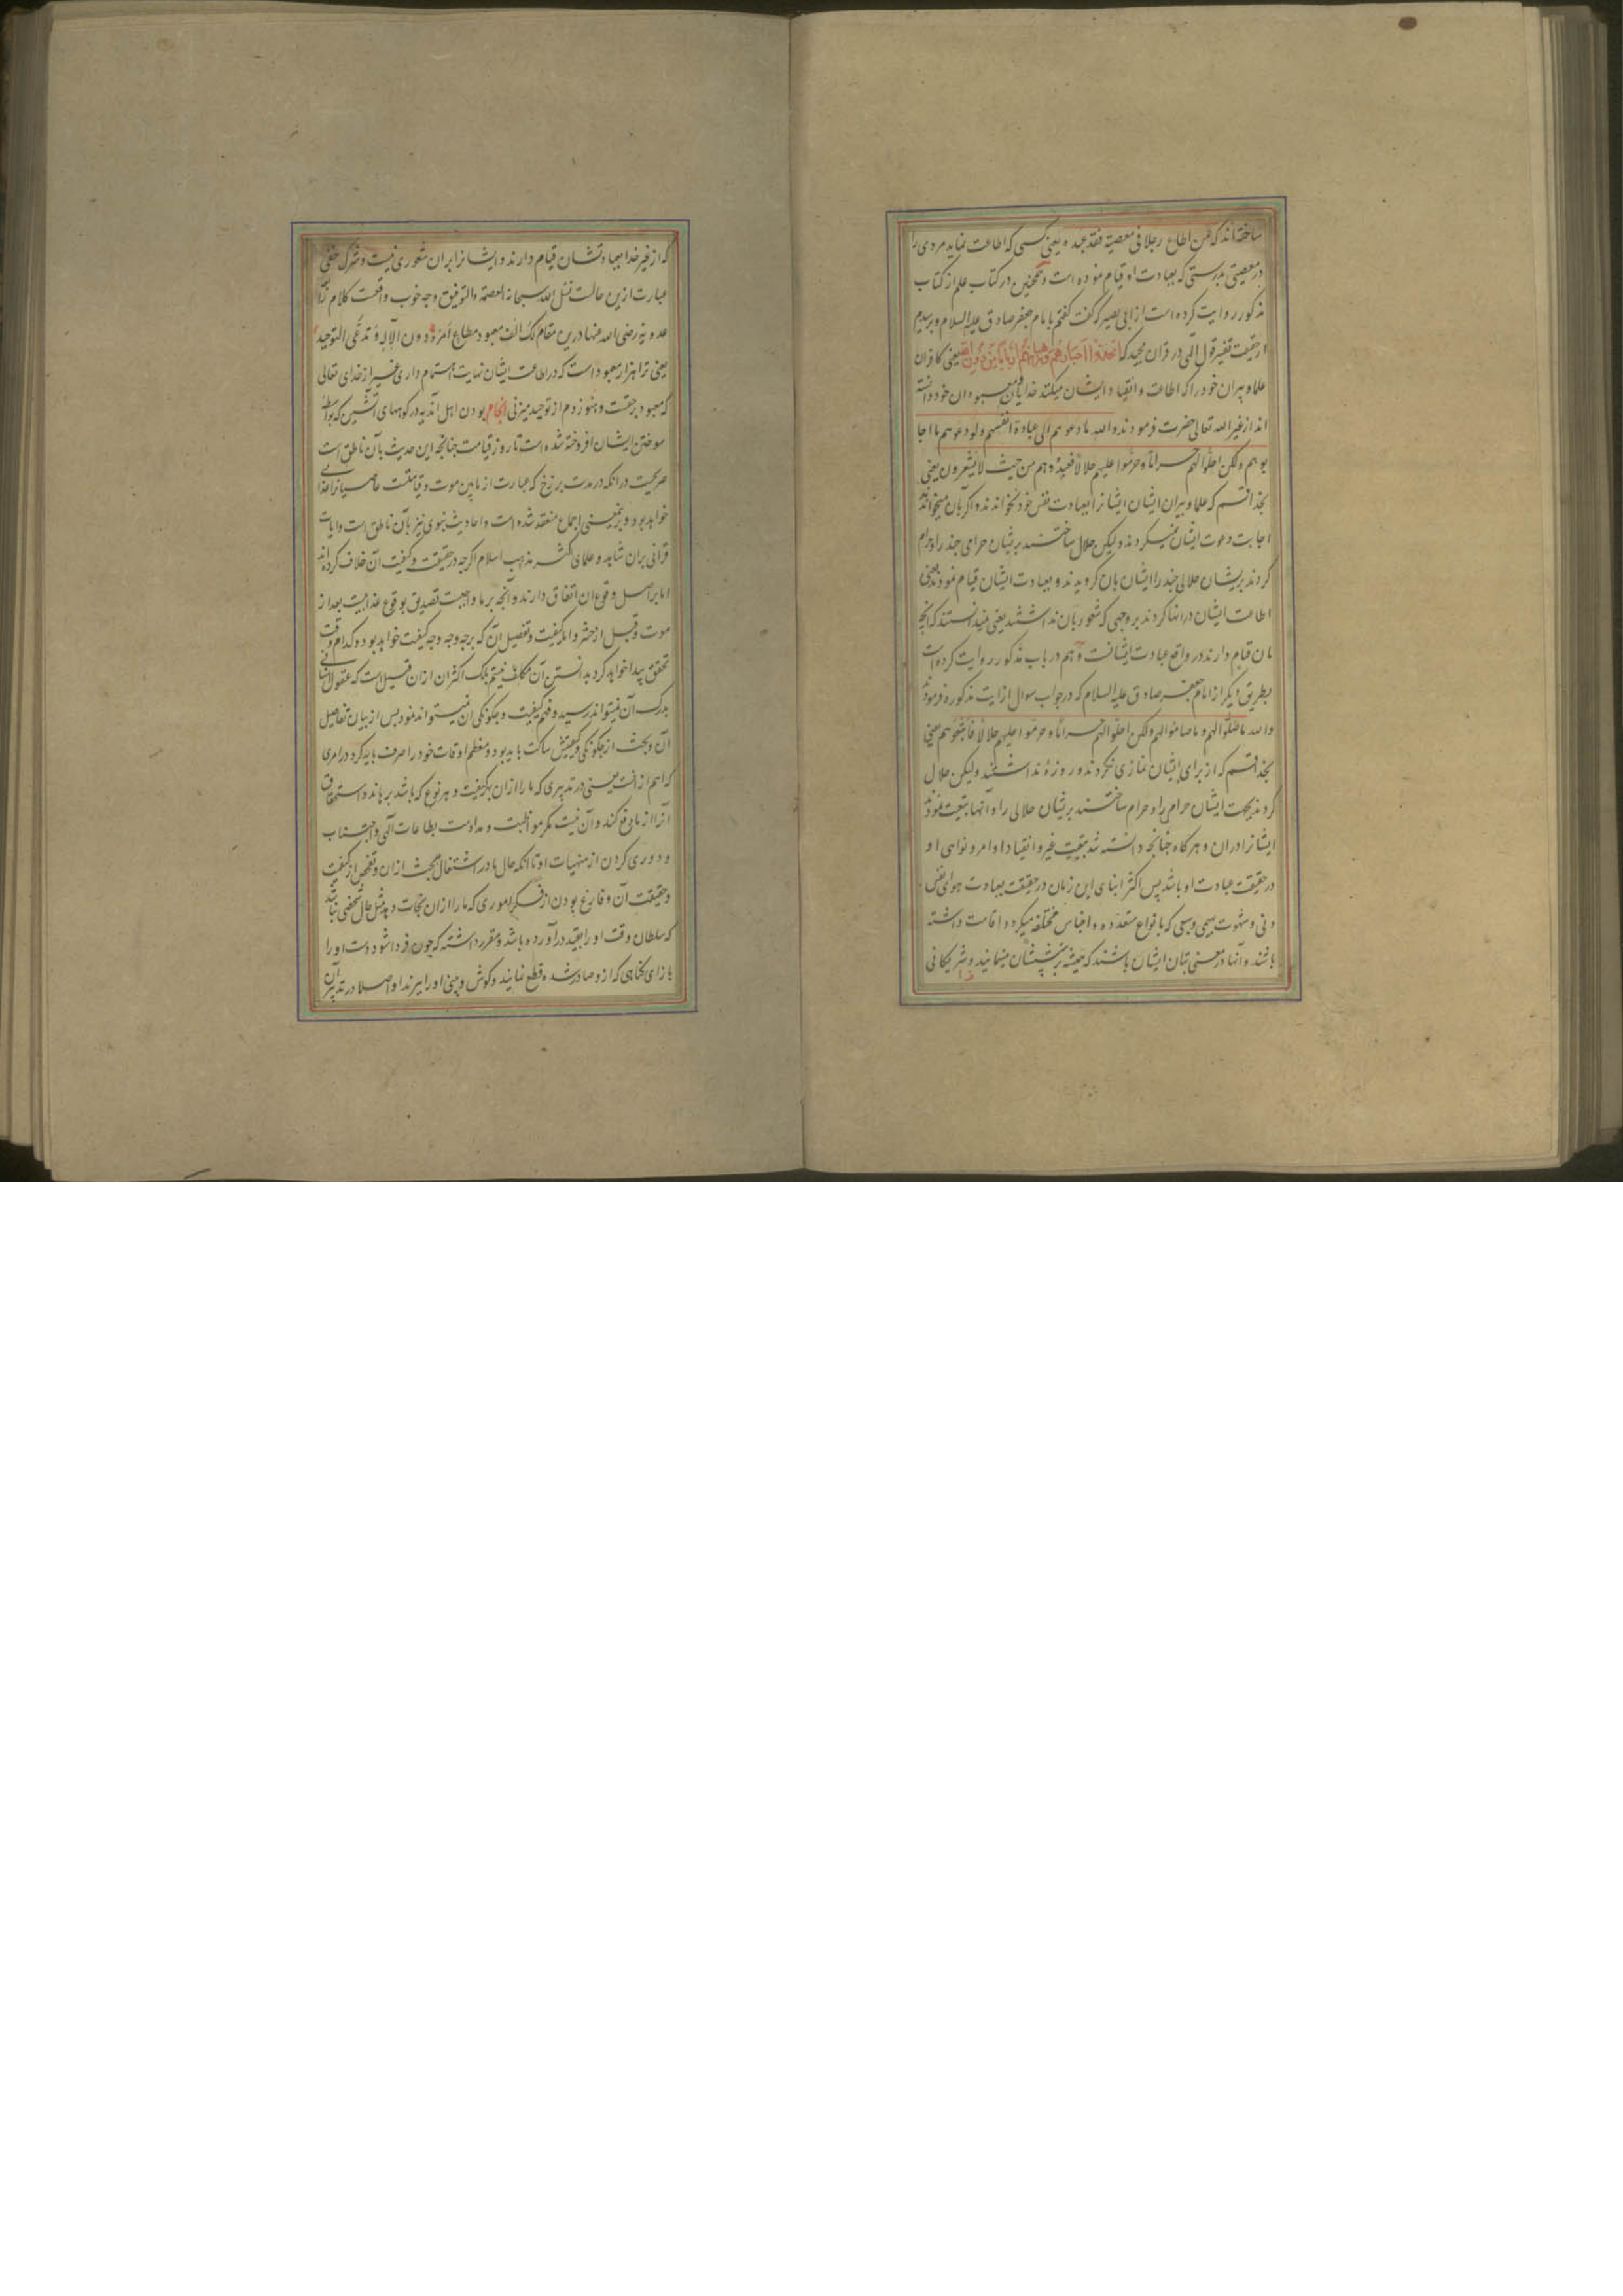 ساخته‌اند که من اطاع رجلا فی معصیة فقد عبده یعنی کسی که اطاعت نماید مردی را
در معصیتی بدرستی که بعبادت او قیام نموده است و همچنین در کتاب علم از کتاب
مذکور روایت کرده است از ابی بصیر که گفت گفتم بامام جعفر صادق علیه السلام و پرسیدم
از حقیقت تفسیر قول الهی در قران مجید که اتخذوا احبارهم و رهبانهم اربابا من دون الله یعنی کافران
علما و پیران خود را که اطاعت و انقیاد ایشان میکنند خدایان و معبودان خود دانسته
اند از غیر الله تعالی حضرت فرمودند والله ما دعوهم الی عبادة انفسهم ولو دعوهم ما اجا
بوهم ولکن احلوا لهم حراما و حرموا علیهم حلالا فعبدوهم من حیث لا یشعرون یعنی
بخدا قسم که علما و پیران ایشان ایشانرا بعبادت نفس خود نخواندند و اگر بآن میخواندند
اجابت دعوت ایشان نمیکردند ولیکن حلال ساختند بریشان حرامی چند را و حرام
کردند بریشان حلالی چند را ایشان بآن گرویدند و بعبادت ایشان قیام نمودند یعنی
اطاعت ایشان در انها کردند بر وجهی که شعور بآن نداشتند یعنی نمیدانستند که آنچه
بآن قیام دارند در واقع عبادت ایشانست و هم در باب مذکور روایت کرده است
بطریق دیگر از امام جعفر صادق علیه السلام که در جواب سوال از ایت مذکوره فرمودند
والله ما صلوا لهم و ما صاموا لهم ولکن احلوا لهم حراما و حرموا علیهم حلالا فاتبعوهم یعنی
بخدا قسم که از برای ایشان نمازی نکردند و روزهٔ نداشتند ولیکن حلال
کردند بجهت ایشان حرامی را و حرام ساختند بریشان حلالی را و آنها تبعیت نمودند
ایشانرا دران و هر گاه چنانچه دانسته شد تبعیت غیر و انقیاد اوامر و نواهی او
در حقیقت عبادت او باشد پس اکثر ابنای این زمان در حقیقت بعبادت هوای نفس
دنی و شهوت بهیمی و سبعی که بانواع متعدده و اجناس مختلفه میگردد اقامت داشته
باشند و آنها در معنی بتان ایشان باشند که همیشه پرستش ایشان مینمایند و شریکانی
که از غیر خدا بعبادتشان قیام دارند و ایشانرا بران شعوری نیست و شرک خفی
عبارت ازین حالت نسئل الله سبحانه العصمة والتوفیق و چه خوب واقعست کلام رابعه
عدویه رضی الله عنها درین مقام لک الف معبود مطاع امره دون الاله و تدعی التوحید
یعنی ترا هزار معبود است که در اطاعت ایشان نهایت اهتمام داری غیر از خدای تعالی
که معبود برحقست و هنوز دم از توحید میزنی انجام بودن اهل آن دیه در کوههای آتشین که بواسطه
سوختن ایشان افروخته شده است تا روز قیامت چنانچه این حدیث بآن ناطق است
صریحست در انکه در مدت برزخ که عبارت از مابین موت و قیامتست عاصیانرا عذابی
خواهد بود و برینمعنی اجماع منعقد شده است و احادیث نبوی نیز بآن ناطق است و ایات
قرانی بران شاهد و علمای اکثر مذاهب اسلام اگرچه در حقیقت و کیفیت آن خلاف کرده‌اند
اما بر اصل وقوع ان اتفاق دارند و آنچه بر ما واجبست تصدیق بوقوع عذابیست بعد از
موت و قبل از حشر و اما کیفیت و تفصیل آن که بر چه وجه و چه کیفیت خواهد بود و کدام وقت
تحقق پیدا خواهد کرد بدانستن آن مکلف نیستیم بلک اکثر ان ازان قبیل است که عقول انسانی
بدرک آن نمیتواند رسید و فهم کیفیت و چگونگی ان نمیتواند نمود پس از بیان تفاصیل
آن و بحث از چگونگی و کیفیتش ساکت باید بود و معظم اوقات خود را صرف باید کرد در امری
که اهم ازانست یعنی در تدبیری که ما را ازان بهر کیفیت و هر نوع که باشد برهاند و استحقاق
آنرا از ما دفع کند و آن نیست مگر مواظبت و مداومت بطاعات الهی و اجتناب
و دوری کردن از منهیات او تا انکه حال ما در اشتغال ببحث ازان و تفحص از کیفیت
و حقیقت آن و فارغ بودن از فکر اموری که ما را ازان نجات دهد مثل حال شخصی نباشد
که سلطان وقت او را بقید درآورده باشد و مقرر داشته که چون فردا شود دست او را
بازای گناهی که ازو صادر شده قطع نمایند و گوش و بینی او را ببرند او اصلا در تدبیر آن